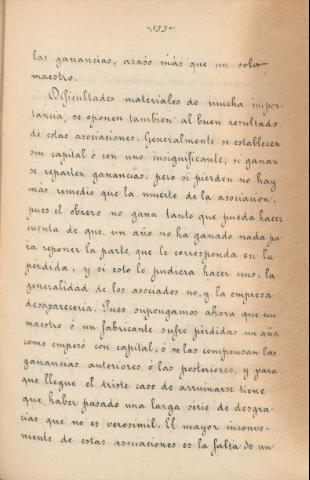 -133-
las ganancias, acaso más que un solo
maestro.
Dificultades materiales de mucha impor-
tancia, se oponen tambien al buen resultado
de estas asociaciones. Generalmente se establecen
sin capital ó con uno insignificante; si ganan
se reparten ganancias, pero si pierden no hay
mas remedio que la muerte de la asociacion,
pues el obrero no gana tanto que pueda hacer
cuenta de que un año no ha ganado nada pa
ra reponer la parte, que le corresponda en la
pérdida, y si esto lo pudiera hacer uno, la
generalidad de los asociados no, y la empresa
desapareceria. Pues supongamos ahora que un
maestro ó un fabricante sufre pérdidas un año
como empezó con capital, ó se las compensan las
ganancias anteriores ó las posteriores, y para
que llegue el triste caso de arruinarse tiene
que haber pasado una larga serie de desgra-
cias que no es verosimil. El mayor inconve-
niente de estas asociaciones es la falta de un